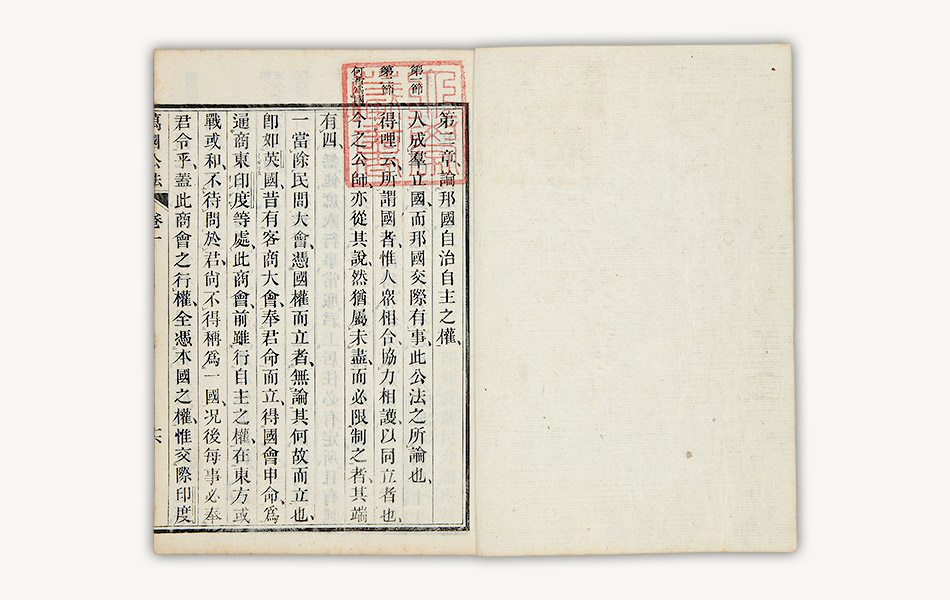 第二章、論邦國自治自主之權、
第一節
人成羣立國、而邦國交際有事、此公法之所論也、
第二節
得哩云、所謂國者、惟人眾相合、協力相護、以同立者也、
何者爲國
今之公師、亦從其說、然猶屬未盡、而必限制之者、其端
有四、
一當除民間大會、憑國權而立者、無論其何故而立也、
卽如英國、昔有客商大會、奉君命而立、得國會申命、爲
通商東印度等處、此商會前雖行自主之權、在東方或
戰或和、不待問於君、尙不得稱爲一國、况後每事必奉
君令乎、蓋此商會之行權、全憑本國之權、惟交際印度
萬國公法 卷一 十六